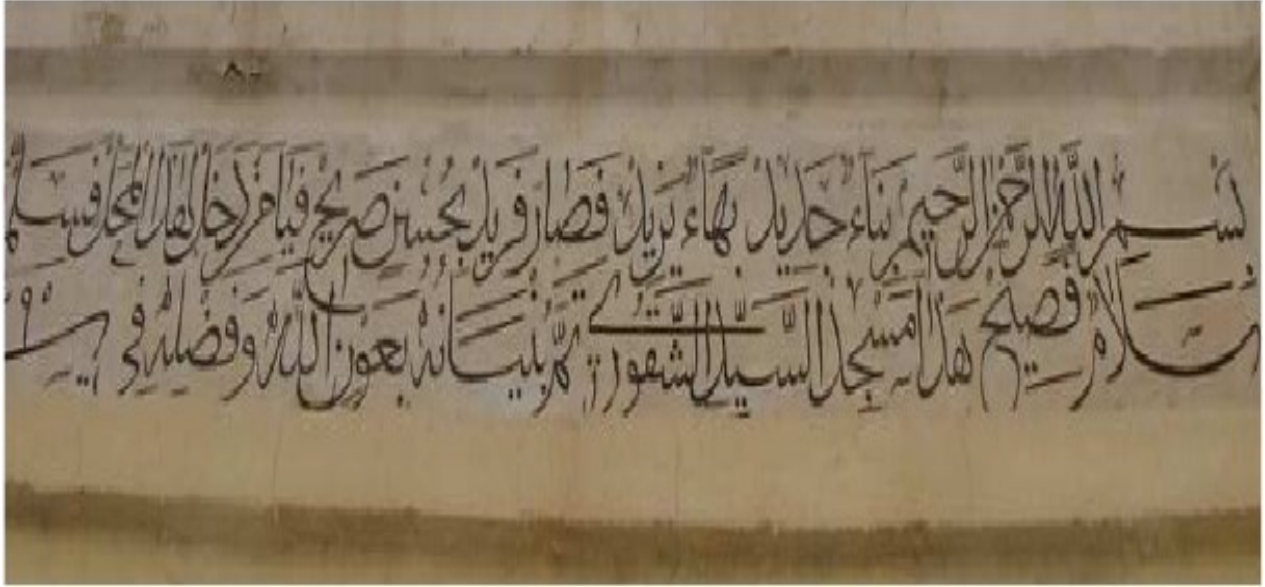 بسم الله الرحمن الرحيم بناء جديد بهاء يزيد فصار فريد بحسن صريح فيا من دخل لهذا المحل فسلم
سلام فصيح هذا مسجد السيد الشقوري تم بنيانه بعون الله وفضله في